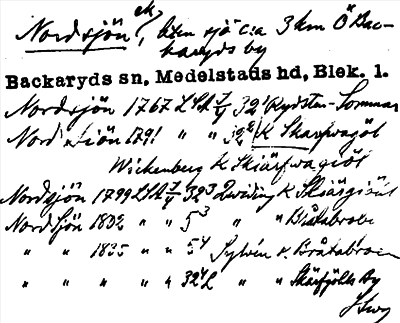 Nordsjön ek, liten sjö c:a 3 km Ö Bac-
karyds by
Backaryds sn, Medelstads hd, Blek. l.
Nordsjön 1767 LSA 7/4 32¹ Rydsten-Sommar
Nord Siön 1791 " " 32² K Skarfwagöl
Wickenberg K Skiärfwagiöl
Nordsjön 1799 LSA 7/4 32³ K Skiärgiöl
Nord Sjön 1832 " " 5³ " Bråtabron
" " 1835 " " 5⁴ Sylvén K Bråtabron
" " " " " 32⁴ " " Skärfjölls by